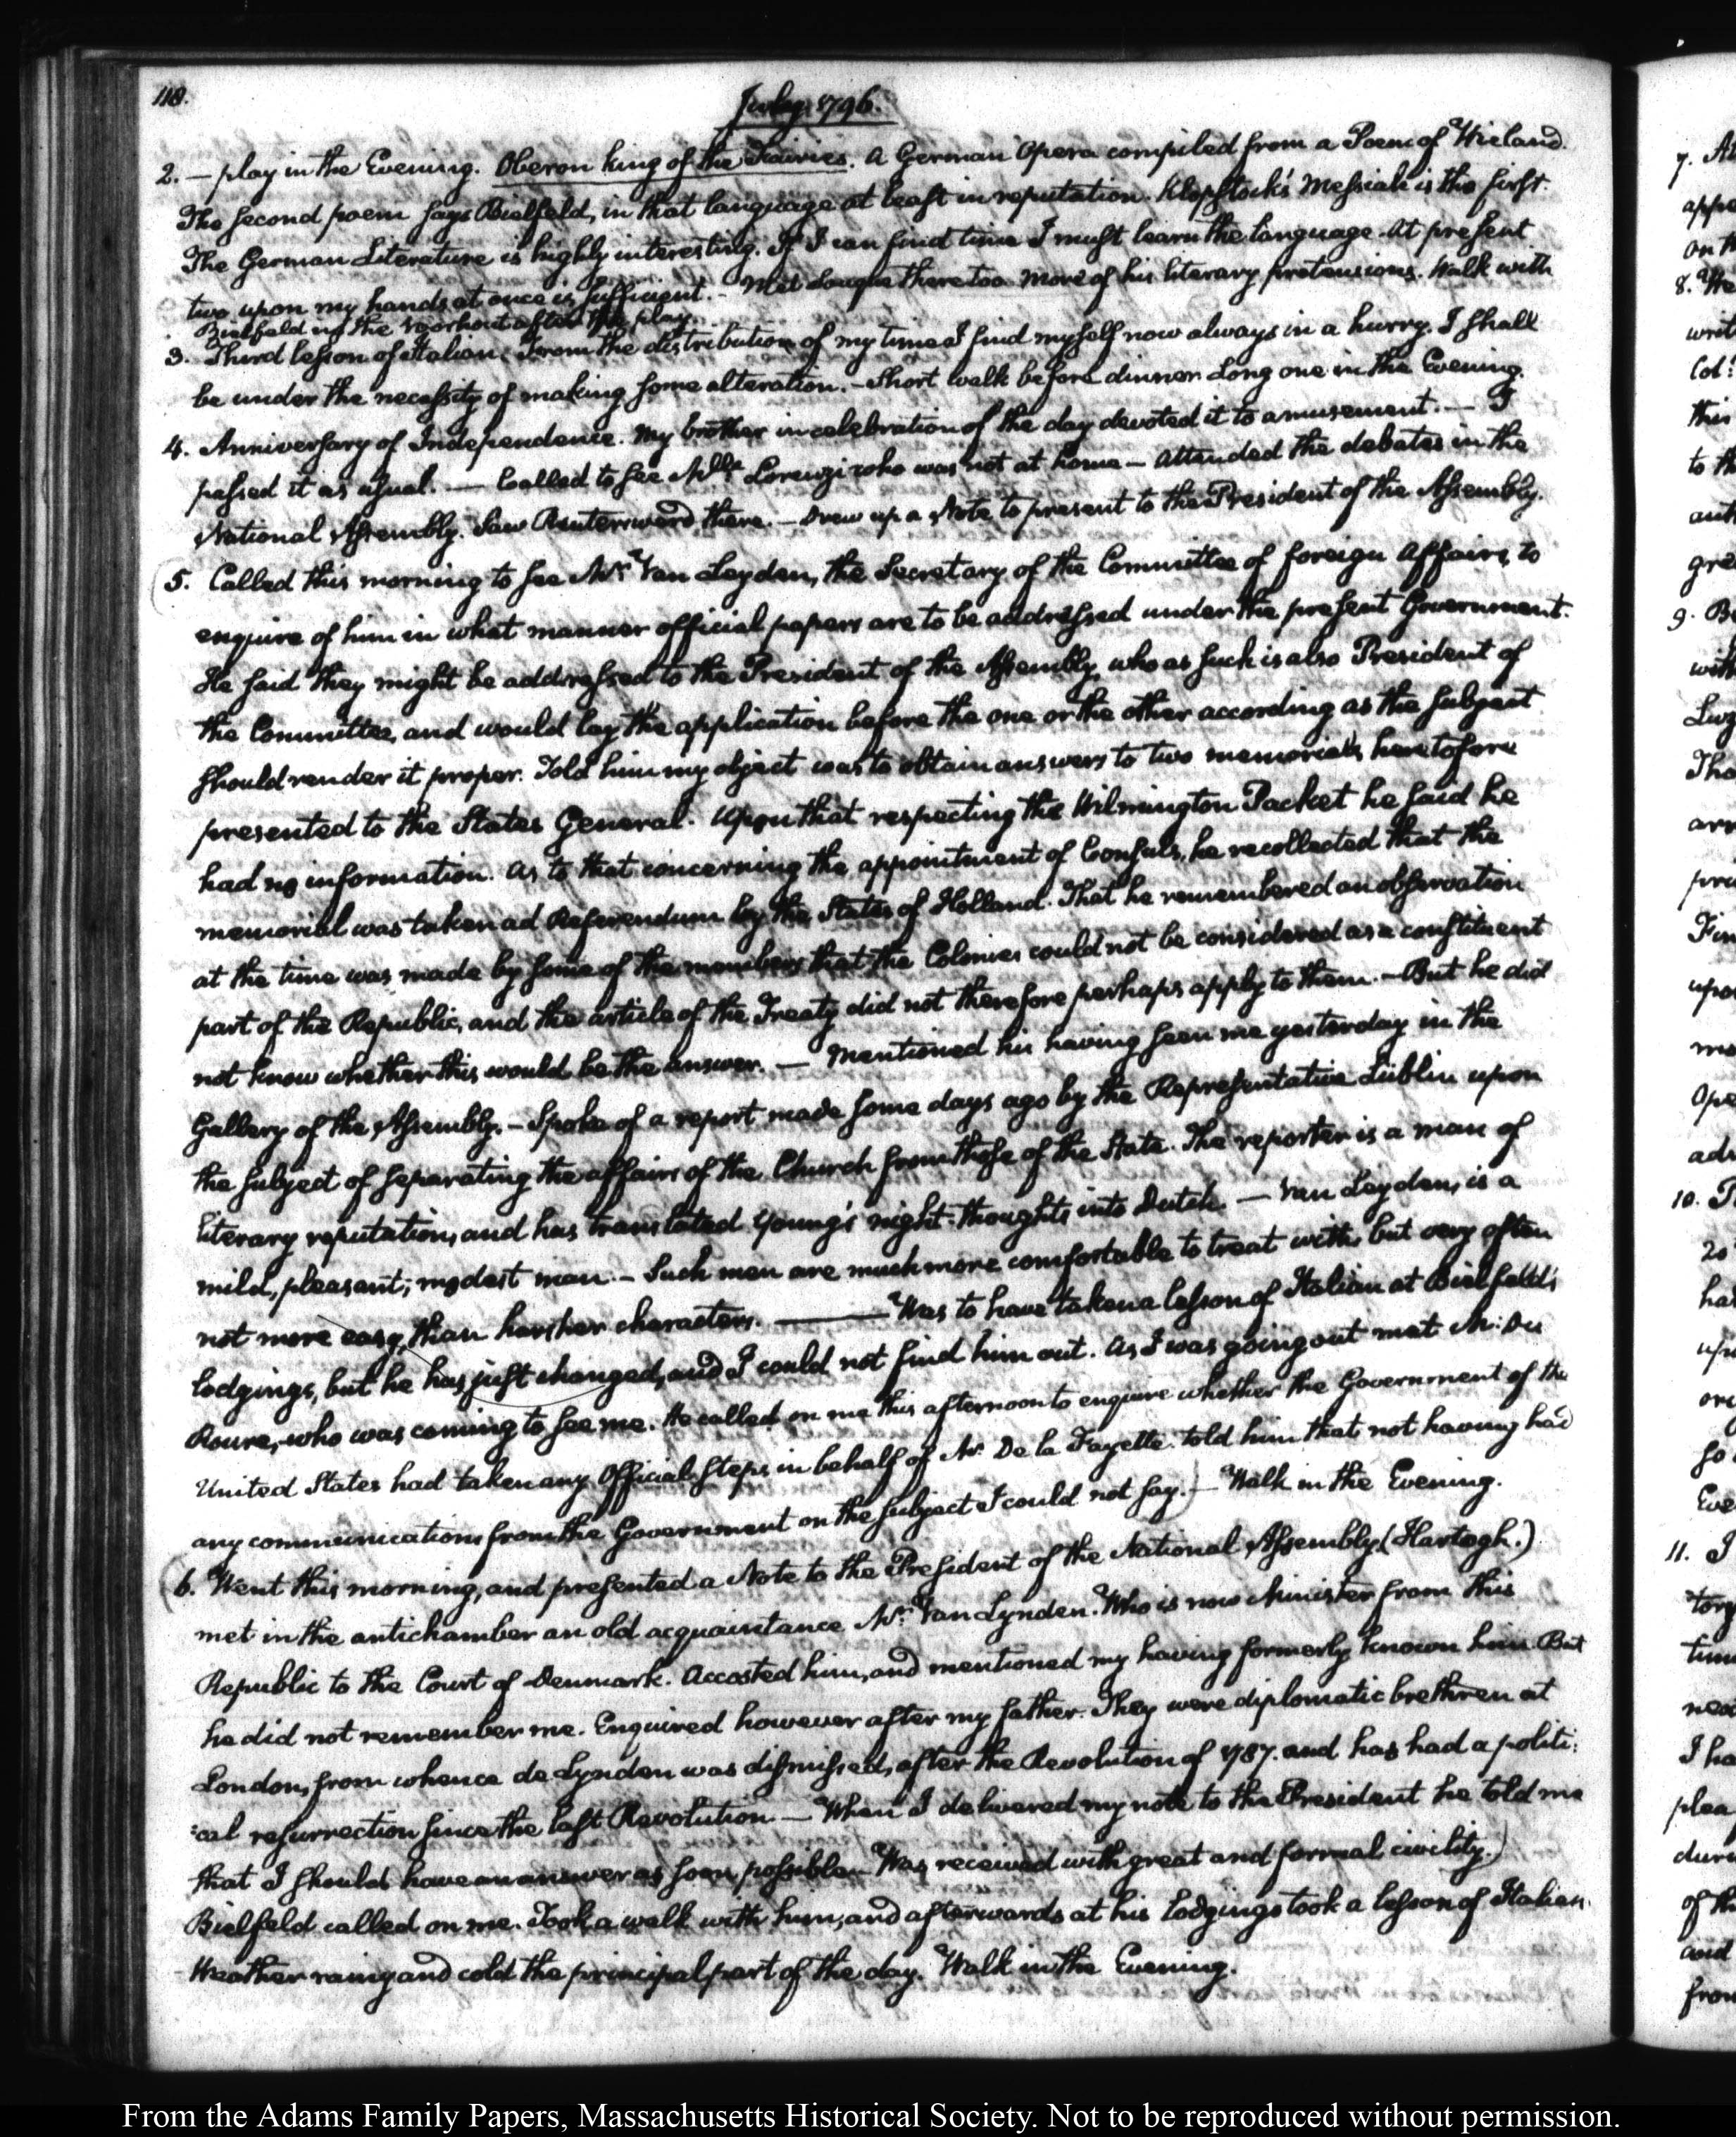 118.
July. 1796.
2. — play in the Evening. Oberon king of the Fairies. A German Opera compiled from a Poem of Wieland.
The second poem says Bielfeld, in that language at least in reputation. Klopstock's Messiah is the first.
The German Literature is highly interesting. If I can find time I must learn the language. At present
two upon my hands at once is sufficient. — Met there too more of his literary pretensions. Walk with
Bielfeld up the Voorhout after the play.
3. Third lesson of Italian. From the distribution of my time I find myself now always in a hurry. I shall
be under the necessity of making some alteration. — Short walk before dinner Long one in the Evening.
4. Anniversary of Independence. My brother in celebration of the day devoted it to amusement. — I
passed it as usual. — Called to see Mlle Lorenzi who was not at home — Attended the debates in the
National Assembly. Saw Reutersward there. — Drew up a Note to present to the President of the Assembly.
5. Called this morning to see Mr. Van Leyden, the Secretary of the Committee of foreign Affairs, to
enquire of him in what manner official papers are to be addressed under the present Government.
He said they might be addressed to the President of the Assembly, who as such is also President of
the Committee, and would lay the application before the one or the other according as the subject
should render it proper. Told him my object was to obtain answers to two memorials heretofore
presented to the States General. Upon that respecting the Wilmington Packet he said he
had no information. As to that concerning the appointment of Consuls, he recollected that the
memorial was taken ad Referendum by the States of Holland. That he remembered an observation
at the time was made by some of the members that the Colonies could not be considered as a constituent
part of the Republic, and the article of the Treaty did not therefore perhaps apply to them. — But he did
not know whether this would be the answer. — Mentioned his having seen me yesterday in the
Gallery of the Assembly. — Spoke of a report made some days ago by the Representative Lublin upon
the subject of separating the affairs of the Church from those of the State. The reporter is a man of
literary reputation, and has translated Young's night-thoughts into Dutch. — Van Leyden, is a
mild, pleasant, modest man. — Such men are much more comfortable to treat with, but very often
not more easy, than harsher characters. — Was to have taken a lesson of Italian at Bielfeld's
lodgings, but he has just changed, and I could not find him out. As I was going out met Mr: Du
Roure, who was coming to see me. He called on me this afternoon to enquire whether the Government of the
United States had taken any Official steps in behalf of Mr. De la Fayette. told him that not having had
any communications from the Government on the subject I could not say.) — Walk in the Evening.
(6. Went this morning, and presented a Note to the President of the National Assembly (Hartogh.)
met in the antichamber an old acquaintance Mr. Van Lynden. Who is now Minister from this
Republic to the Court of Denmark. Accosted him, and mentioned my having formerly known him. But
he did not remember me. Enquired however after my father. They were diplomatic brethren at
London, from whence de Lynden was dismissed, after the Revolution of 1787. and has had a politi:
:cal resurrection since the last Revolution — When I delivered my note to the President he told me
that I should have an answer as soon possible. Was received with great and formal civility.)
Bielfeld called on me. Took a walk with him, and afterwards at his lodgings took a lesson of Italian.
Weather rainy and cold the principal part of the day. Walk in the Evening.
From the Adams Family Papers, Massachusetts Historical Society. Not to be reproduced without permission.